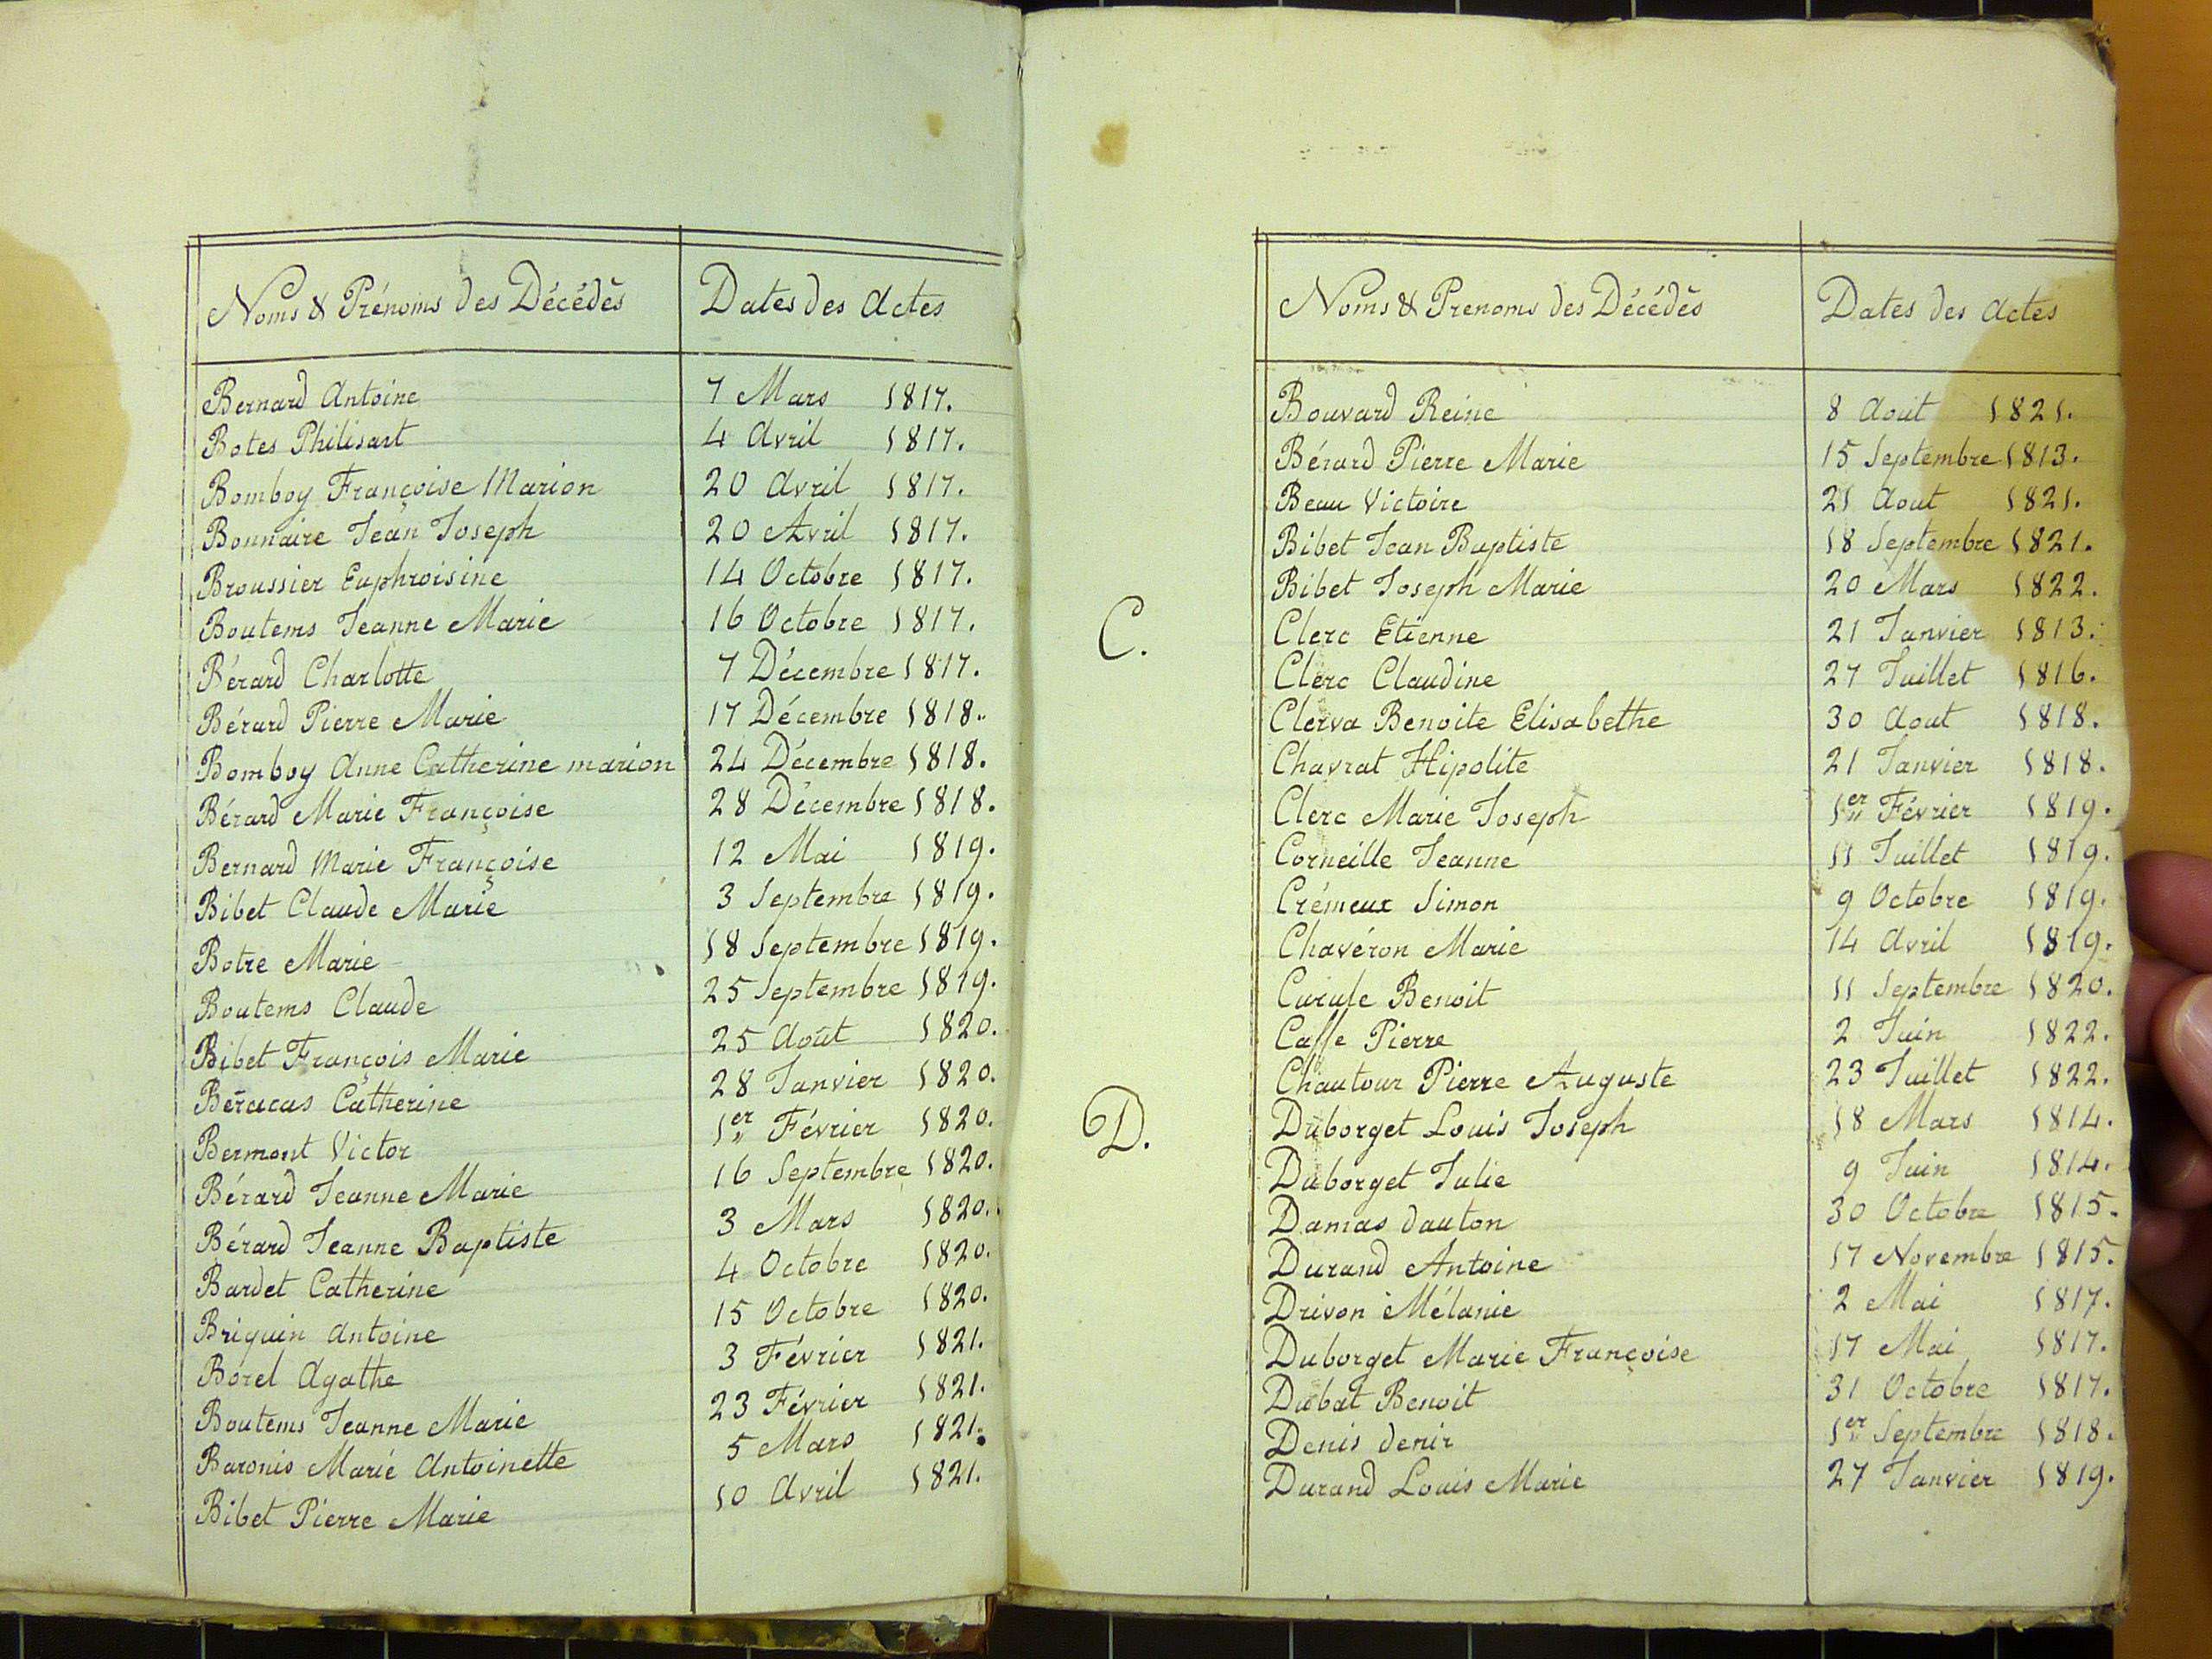 Noms & Prénoms des Décédés Dates des Actes
Bernard Antoine 7 Mars 1817.
Botes Philisart 4 Avril 1817.
Bomboy Françoise Marion 20 Avril 1817.
Bonnaire Jean Joseph 20 Avril 1817.
Broussier Euphroisine 14 Octobre 1817.
Boutems Jeanne Marie 16 Octobre 1817.
Bérard Charlotte 7 Décembre 1817.
Bérard Pierre Marie 17 Décembre 1818.
Bomboy Anne Catherine marion 24 Décembre 1818.
Bérard Marie Françoise 28 Décembre 1818.
Bernard Marie Françoise 12 Mai 1819.
Bibet Claude Marie 3 Septembre 1819.
Botre Marie 18 Septembre 1819.
Boutems Claude 25 Septembre 1819.
Bibet François Marie 25 Août 1820.
Béracas Catherine 28 Janvier 1820.
Bermont Victor 1er Février 1820.
Bérard Jeanne Marie 16 Septembre 1820.
Bérard Jeanne Baptiste 3 Mars 1820.
Bardet Catherine 4 Octobre 1820.
Briquin Antoine 15 Octobre 1820.
Borel Agathe 3 Février 1821.
Boutems Jeanne Marie 23 Février 1821.
Baronis Marie Antoinette 5 Mars 1821.
Bibet Pierre Marie 10 Avril 1821.
Noms & Prenoms des Décédés Dates des Actes
Bouvard Reine 8 Août 1821.
Bérard Pierre Marie 15 Septembre 1813.
Beau Victoire 21 Aout 1821.
Bibet Jean Baptiste 18 Septembre 1821.
Bibet Joseph Marie 20 Mars 1822.
C. Clerc Etienne 21 Janvier 1813.
Clerc Claudine 27 Juillet 1816.
Clerva Benoite Elisabethe 30 Aout 1818.
Chavrat Hipolite 21 Janvier 1818.
Clerc Marie Joseph 1er Février 1819.
Corneille Jeanne 11 Juillet 1819.
Crémeux Simon 9 Octobre 1819.
Chavéron Marie 14 Avril 1819.
Curule Benoit 11 Septembre 1820.
Caffe Pierre 2 Juin 1822.
Chautour Pierre Auguste 23 Juillet 1822.
D. Duborget Louis Joseph 18 Mars 1814.
Duborget Julie 9 Juin 1814.
Damas dauton 30 Octobre 1815.
Durand Antoine 17 Novembre 1815.
Drivon Mélanie 2 Mai 1817.
Duborget Marie Françoise 17 Mai 1817.
Dubat Benoit 31 Octobre 1817.
Denis denir 1er Septembre 1818.
Durand Louis Marie 27 Janvier 1819.